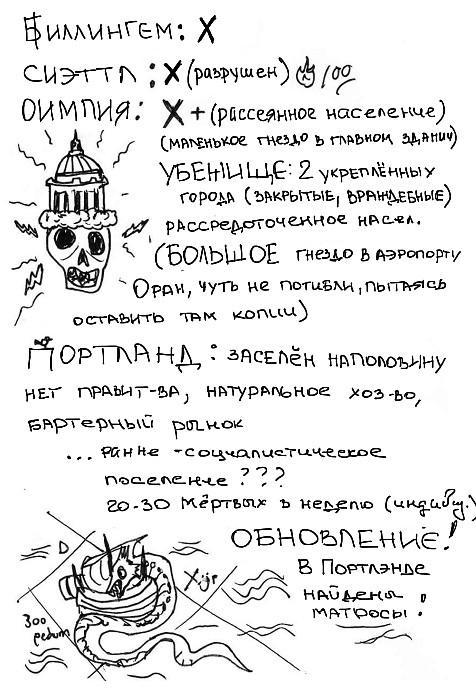 Биллингем: X
Сиэттл: X (разрушен) 100
Оимпия: X + (рассеянное население)
(маленькое гнездо в главном здании)
Убенище: 2 укреплённых
города (закрытые, враждебные)
рассредоточенное насел.
(большое гнездо в аэропорту
Оран, чуть не погибли, пытаясь
оставить там копии)
Портланд: заселён наполовину
нет правит-ва, натуральное хоз-во,
бартерный рынок
... ранне-социалистическое
поселение ???
20-30 мёртвых в неделю (индивид.)
Обновление!
В Портлэнде
найдены
матросы!
D
300